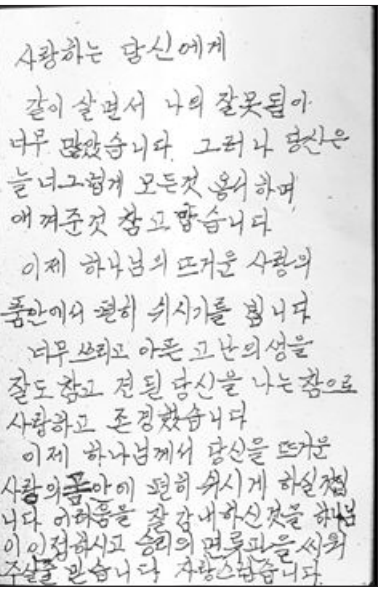 사랑하는 당신에게
같이 살면서 나의 잘못됨이
너무 많았습니다. 그러나 당신은
늘 너그럽게 모든것 용서하며
애껴준것 참 고맙습니다
이제 하나님의 뜨거운 사랑의
품안에서 편히 쉬시기를 빕니다
너무 쓰리고 아픈 고난의 생을
잘도 참고 견딘 당신을 나는 참으로
사랑하고 존경했습니다
이제 하나님께서 당신을 뜨거운
사랑의 품안에 편히 쉬시게 하실것입
니다 어려움을 잘 감내하신것을 하나님
이 인정하시고 승리의 면류관을 씌워
주실줄 믿습니다 자랑스럽습니다.